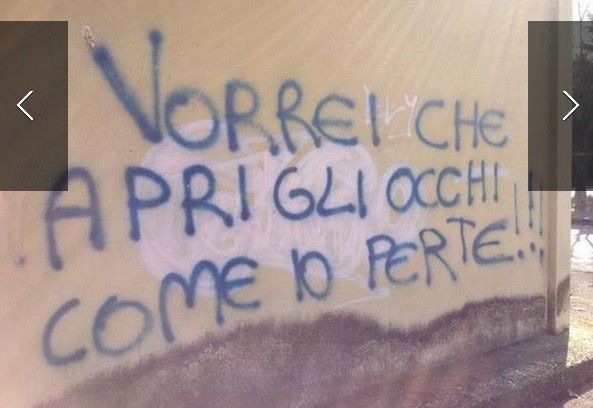 VORREI CHE
APRI GLI OCCHI
COME IO PERTE!!!